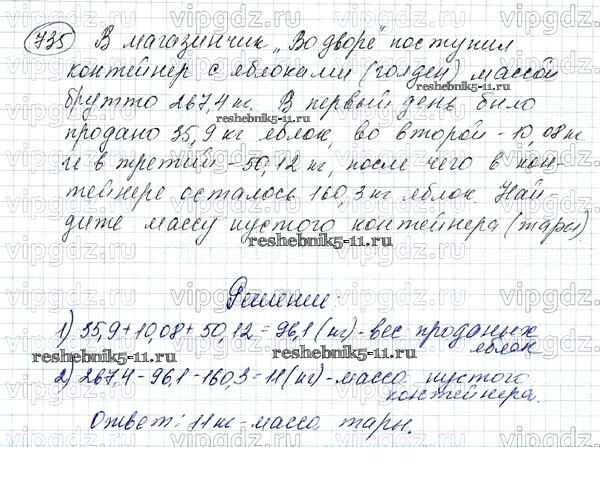 735 В магазинчик „Во дворе" поступил
контейнер с яблоками (голден) массой
брутто 267,4 кг. В первый день было
продано 35,9 кг яблок, во второй - 10,08 кг
и в третий - 50,12 кг, после чего в кон-
тейнере осталось 160,3 кг яблок. Най-
дите массу пустого контейнера (тары)
reshebnik5-11.ru
Решение:
1) 35,9 + 10,08 + 50,12 = 96,1 (кг) - вес проданых
яблок
reshebnik5-11.ru
2) 267,4 - 96,1 - 160,3 = 11 (кг) - масса пустого
контейнера.
Ответ: 11 кг - масса тары.